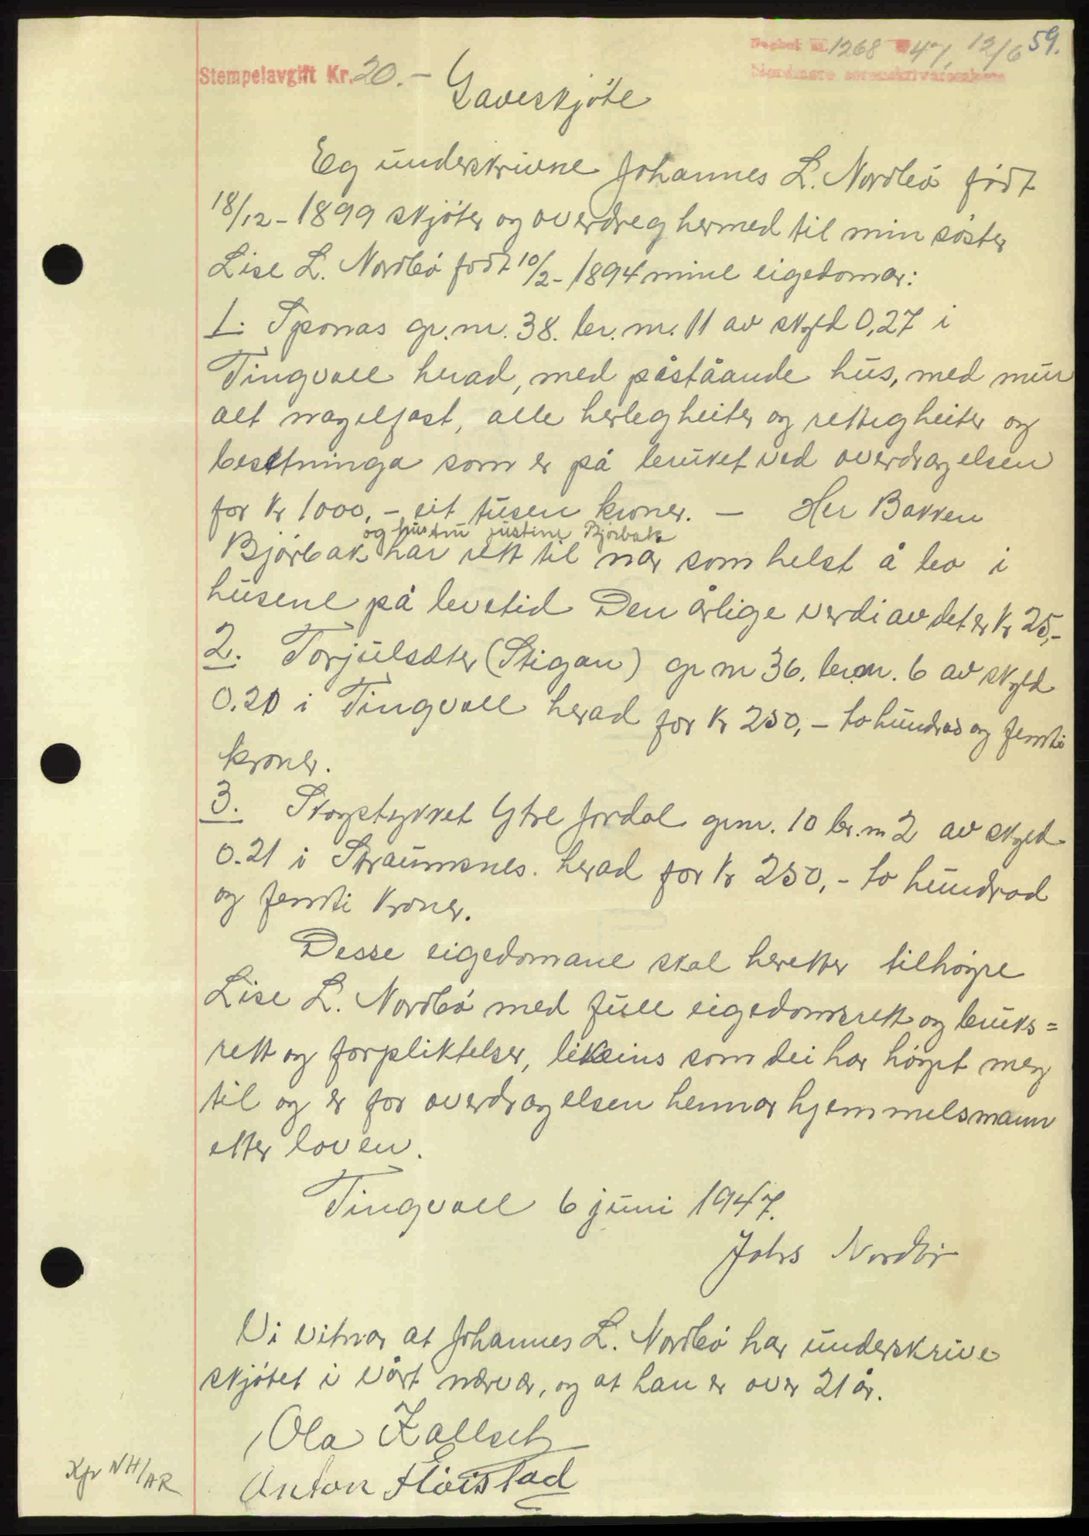 59.
Dagbok nr. 1268 47, 12/6
Nordmøre sorenskriverembete
Stempelavgift Kr. 20.-
Gaveskjöte
Eg underskrivne Johannes L. Nordbö födt
18/12-1899 skjöter og overdreg hermed til min söster
Lise L. Nordbö födt 10/2-1894 mine eigedomar:
1. Sponas gr. nr. 38. br. nr. 11 av skyld 0,27 i
Tingvoll herad, med påståande hus, med mur
alt nagelfast, alle herlegheiter og rettigheiter og
besetninga som er på bruket ved overdragelsen
for kr 1000,- eit tusen kroner. - Her Bakken
og hustru Justine Bjørbak
Björbak har rett til nar som helst å bo i
husene på levetid Den årlige verdi av det er kr 25,-
2. Torjulsæter (Stigan) gr nr 36. br. nr. 6 av skyld
0.20 i Tingvoll herad for kr 250,- to hundrad og femti
kroner.
3. Skogstykket Ytre Jordal grnr. 10 br. nr 2 av skyld
0.21 i Straumsnes. herad for kr 250,- to hundrad
og femti kroner.
Desse eigedomane skal heretter tilhöyre
Lise L. Nordbö med full eigedomsrett og bruks=
rett og forpliktelser, likeins som dei har höyrt meg
til og er for overdragelsen hennar hjemmelsmann
etter loven.
Tingvoll 6 juni 1947.
Johs Nordbö
Vi vitnar at Johannes L. Nordbö har underskrive
skjötet i vårt nærvær, og at han er over 21 år.
Ola Kallset
Anton Höistad
Kfr NH/AR